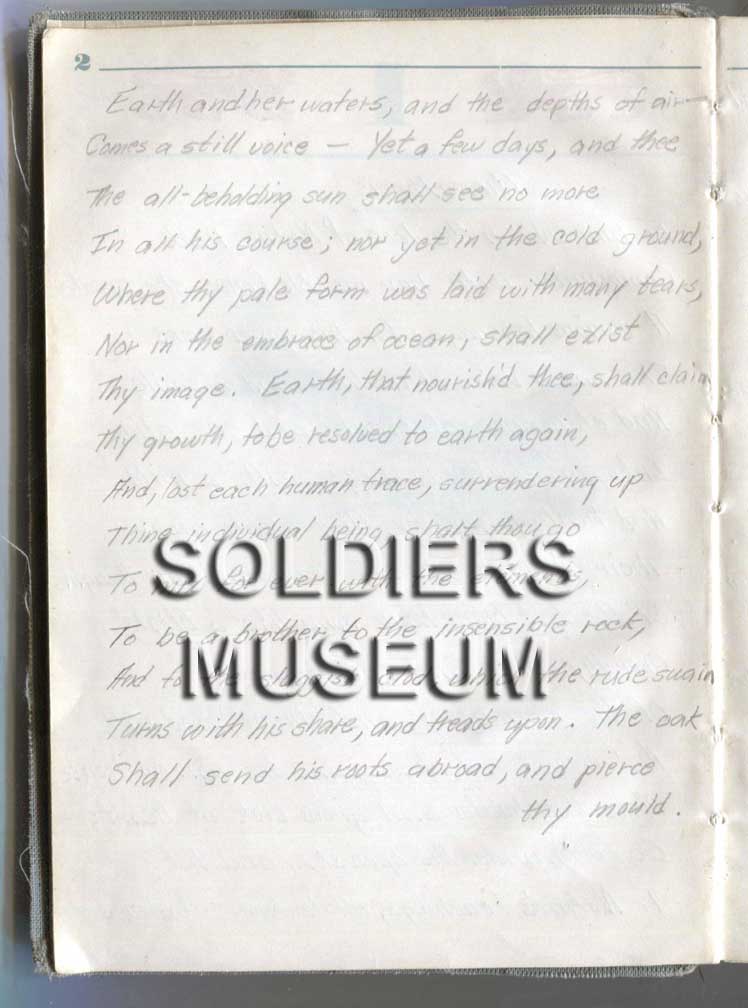 2
Earth and her waters, and the depths of air—
Comes a still voice — Yet a few days, and thee
The all-beholding sun shall see no more
In all his course; nor yet in the cold ground,
Where thy pale form was laid with many tears,
Nor in the embrace of ocean, shall exist
Thy image. Earth, that nourish'd thee, shall claim
thy growth, to be resolved to earth again,
And, lost each human trace, surrendering up
Thine individual being, shalt thou go
SOLDIERS
To mix for ever with the elements,
To be a brother to the insensible rock,
MUSEUM
And to the sluggish clod, which the rude swain
Turns with his share, and treads upon. The oak
Shall send his roots abroad, and pierce
thy mould.